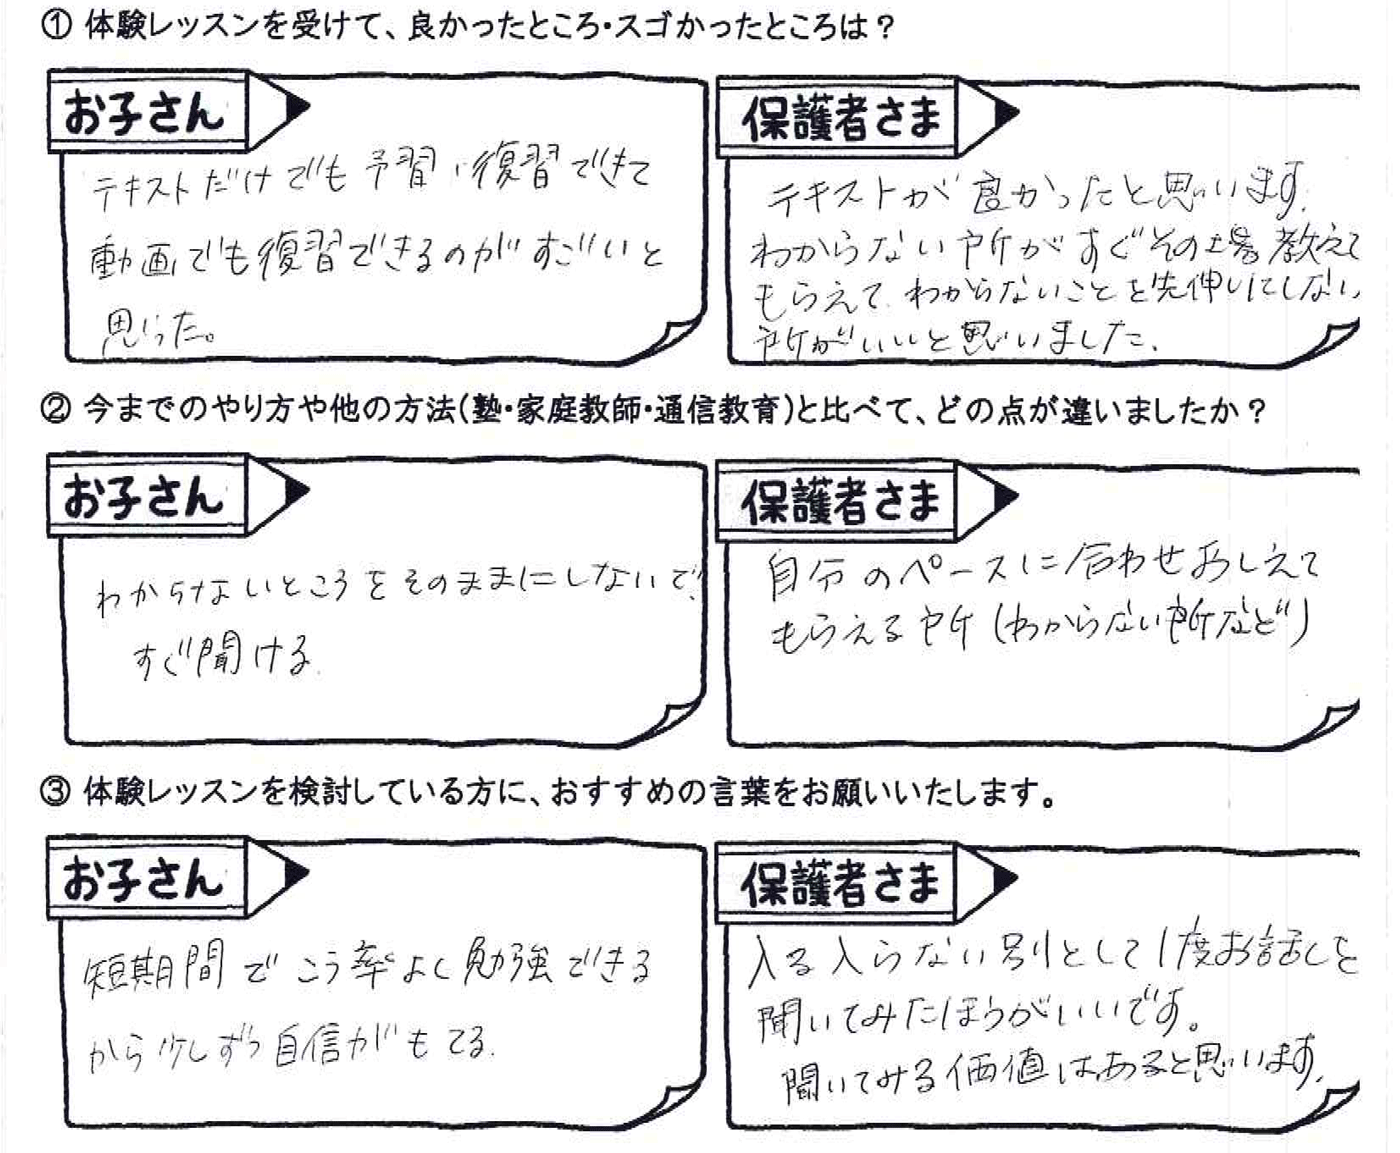 ① 体験レッスンを受けて、良かったところ・スゴかったところは？
お子さん
テキストだけでも予習、復習できて
動画でも復習できるのがすごいと
思った。
保護者さま
テキストが良かったと思います。
わからない所がすぐその場教えて
もらえて、わからないことを先伸しにしない
所がいいと思いました。
② 今までのやり方や他の方法(塾・家庭教師・通信教育)と比べて、どの点が違いましたか？
お子さん
わからないところをそのままにしないで、
すぐ聞ける。
保護者さま
自分のペースに合わせおしえて
もらえる所(わからない所など)
③ 体験レッスンを検討している方に、おすすめの言葉をお願いいたします。
お子さん
短期間でこう率よく勉強できる
から少しずつ自信がもてる。
保護者さま
入る入らない別として1度お話しを
聞いてみたほうがいいです。
聞いてみる価値はあると思います。